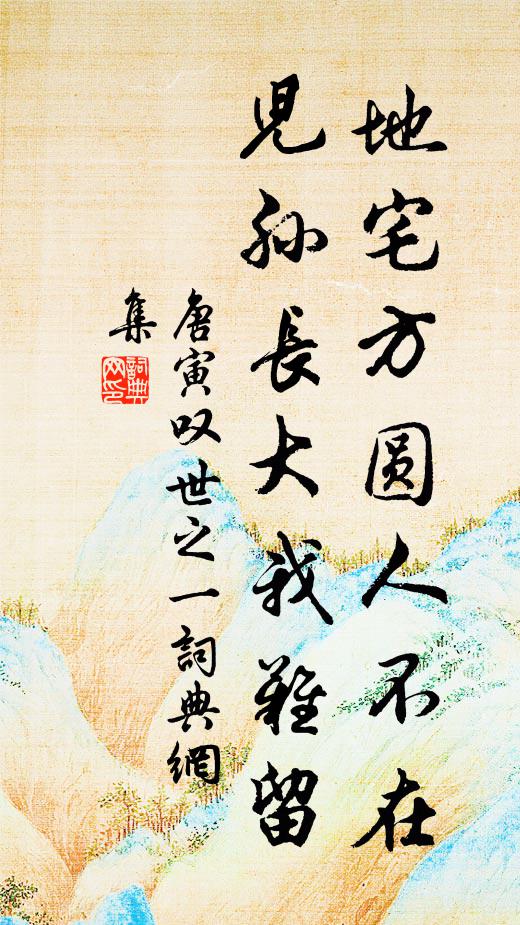 地宅方圆人不在
児孙長大我難留
唐寅叹世之一詞典網
集
詞典
网印